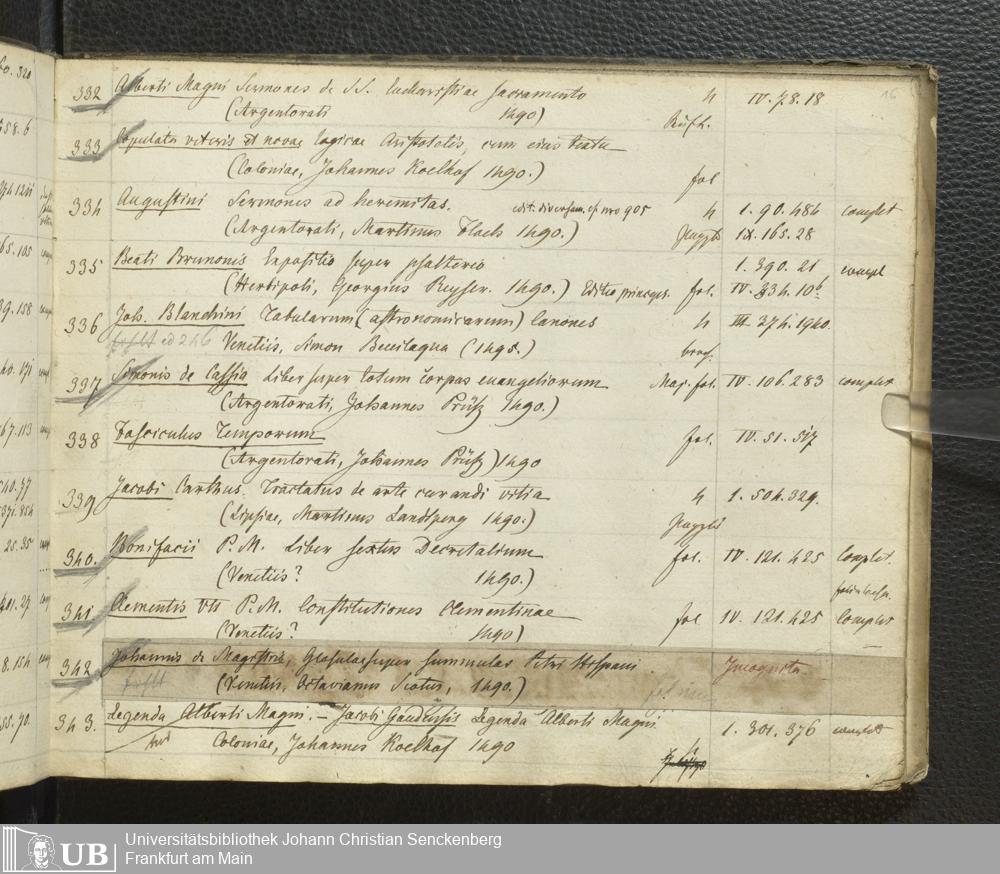 16
332 Alberti Magni Sermones de SS. Eucharistiae Sacramento 4 IV. 78. 18
(Argentorati 1490)
333 Copulata veteris et novae logicae Aristotelis, cum eius textu
(Coloniae, Johannes Koelhof 1490.) fol
334 Augustini Sermones ad heremitas. cf. nro 905 4 1. 90. 484 complet
(Argentorati, Martinus Flach 1490.) IX. 165. 28
335 Beati Brunonis Expositio super psalterio 1. 390. 21 compl
(Herbipoli, Georgius Reyser. 1490.) Editio princeps. fol. IV. 334. 106
336 Joh. Blanchini Tabularum (astronomicarum) Canones 4 III. 374. 1940.
fehlt ed 246 Venetiis, Simon Bevilaqua (1495.)
337 Simonis de Cassia Liber super totum corpus evangeliorum Maj. fol. IV. 106. 283 complet
(Argentorati, Johannes Prüß 1490.)
338 Fasciculus Temporum fol. IV. 51. 517
(Argentorati, Johannes Prüß) 1490
339 Jacobi Carthus. Tractatus de arte curandi vitia 4 1. 504. 329.
(Lipsiae, Martinus Landsperg 1490.)
340. Bonifacii P. M. Liber sextus Decretalium fol. IV. 121. 425 Complet.
(Venetiis? 1490.)
341 Clementis VII P. M. Constitutiones Clementinae fol IV. 121. 425 Complet
(Venetiis? 1490)
342 Johannis de Magistris, Glosulae super summulas Petri Hispani. Incognita
fehlt (Venetiis, Octavianus Scotus, 1490.)
343. Legenda Alberti Magni. – Jacobi Gaudensis Legenda Alberti Magni 1. 301. 376 complet
Coloniae, Johannes Koelhof 1490 4
UB
Universitätsbibliothek Johann Christian Senckenberg
Frankfurt am Main